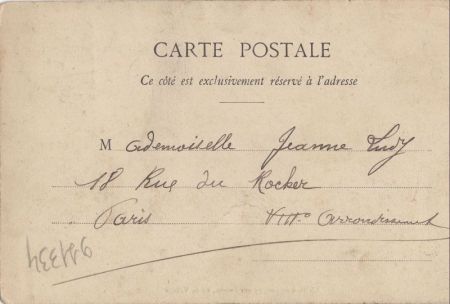 CARTE POSTALE
Ce côté est exclusivement réservé à l'adresse
Mademoiselle Jeanne
18 Rue du Rocher
Paris VIIIe Arrondissement